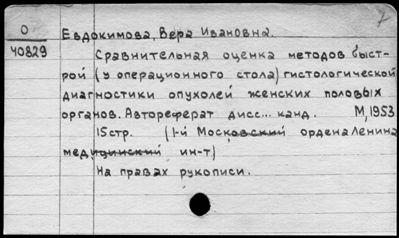 7
О
40829
Евдокимова, Вера Ивановна.
Сравнительная оценка методов быст-
рой (у операционного стола) гистологической
диагностики опухолей женских половых
органов. Автореферат дисс... канд. М, 1953
15стр. (1-й Московский ордена Ленина
медицинский ин-т)
На правах рукописи.